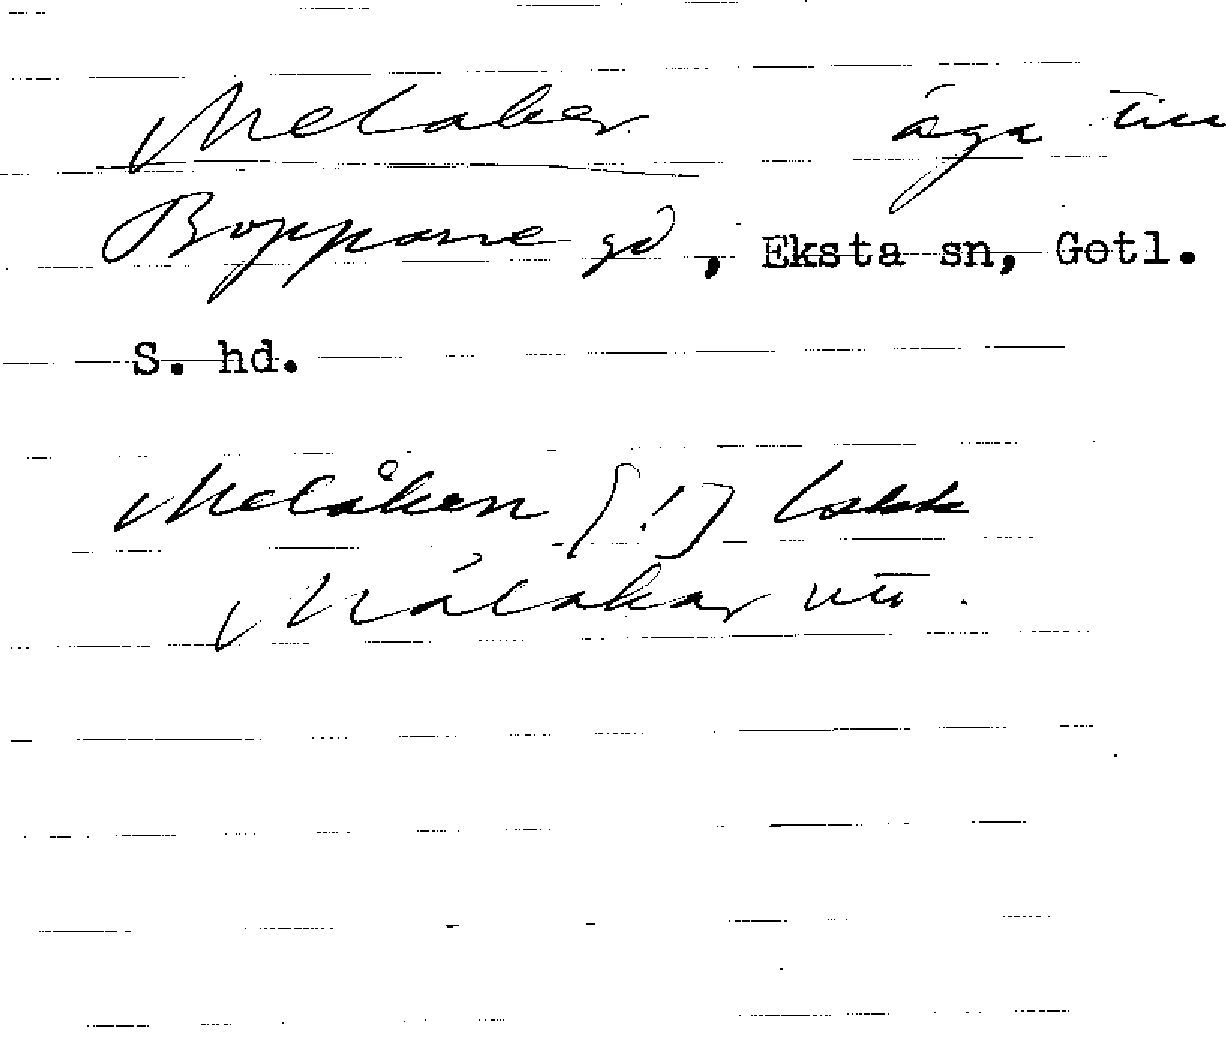 Melaker äga till
Boppane gd, Eksta sn, Gotl.
S. hd.
Melåken [!] Lokk
Målakar utt.